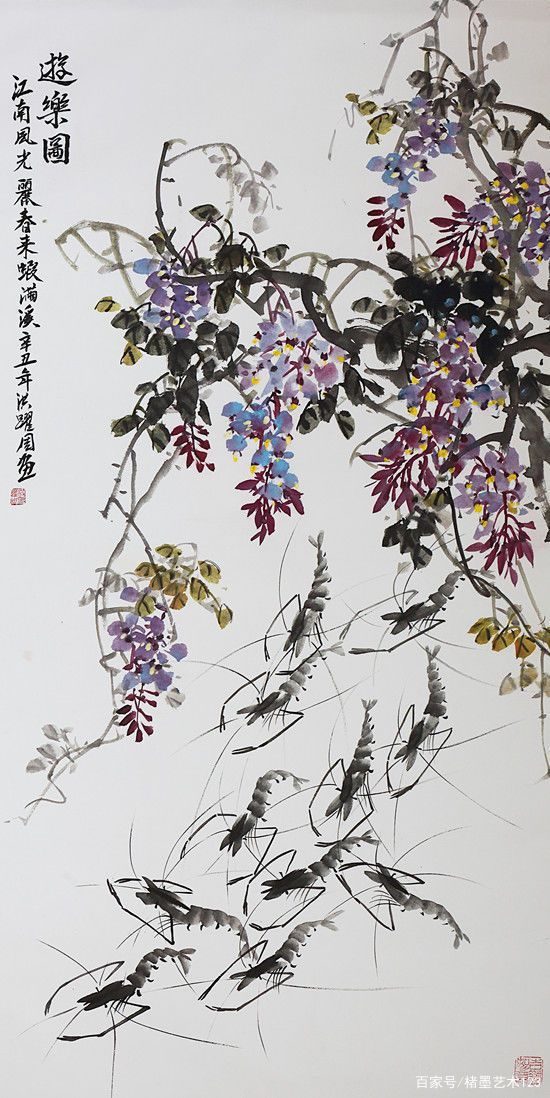 遊樂圖
江南風光麗春来蝦滿溪辛丑年洪躍画
百家号/楮墨艺术123